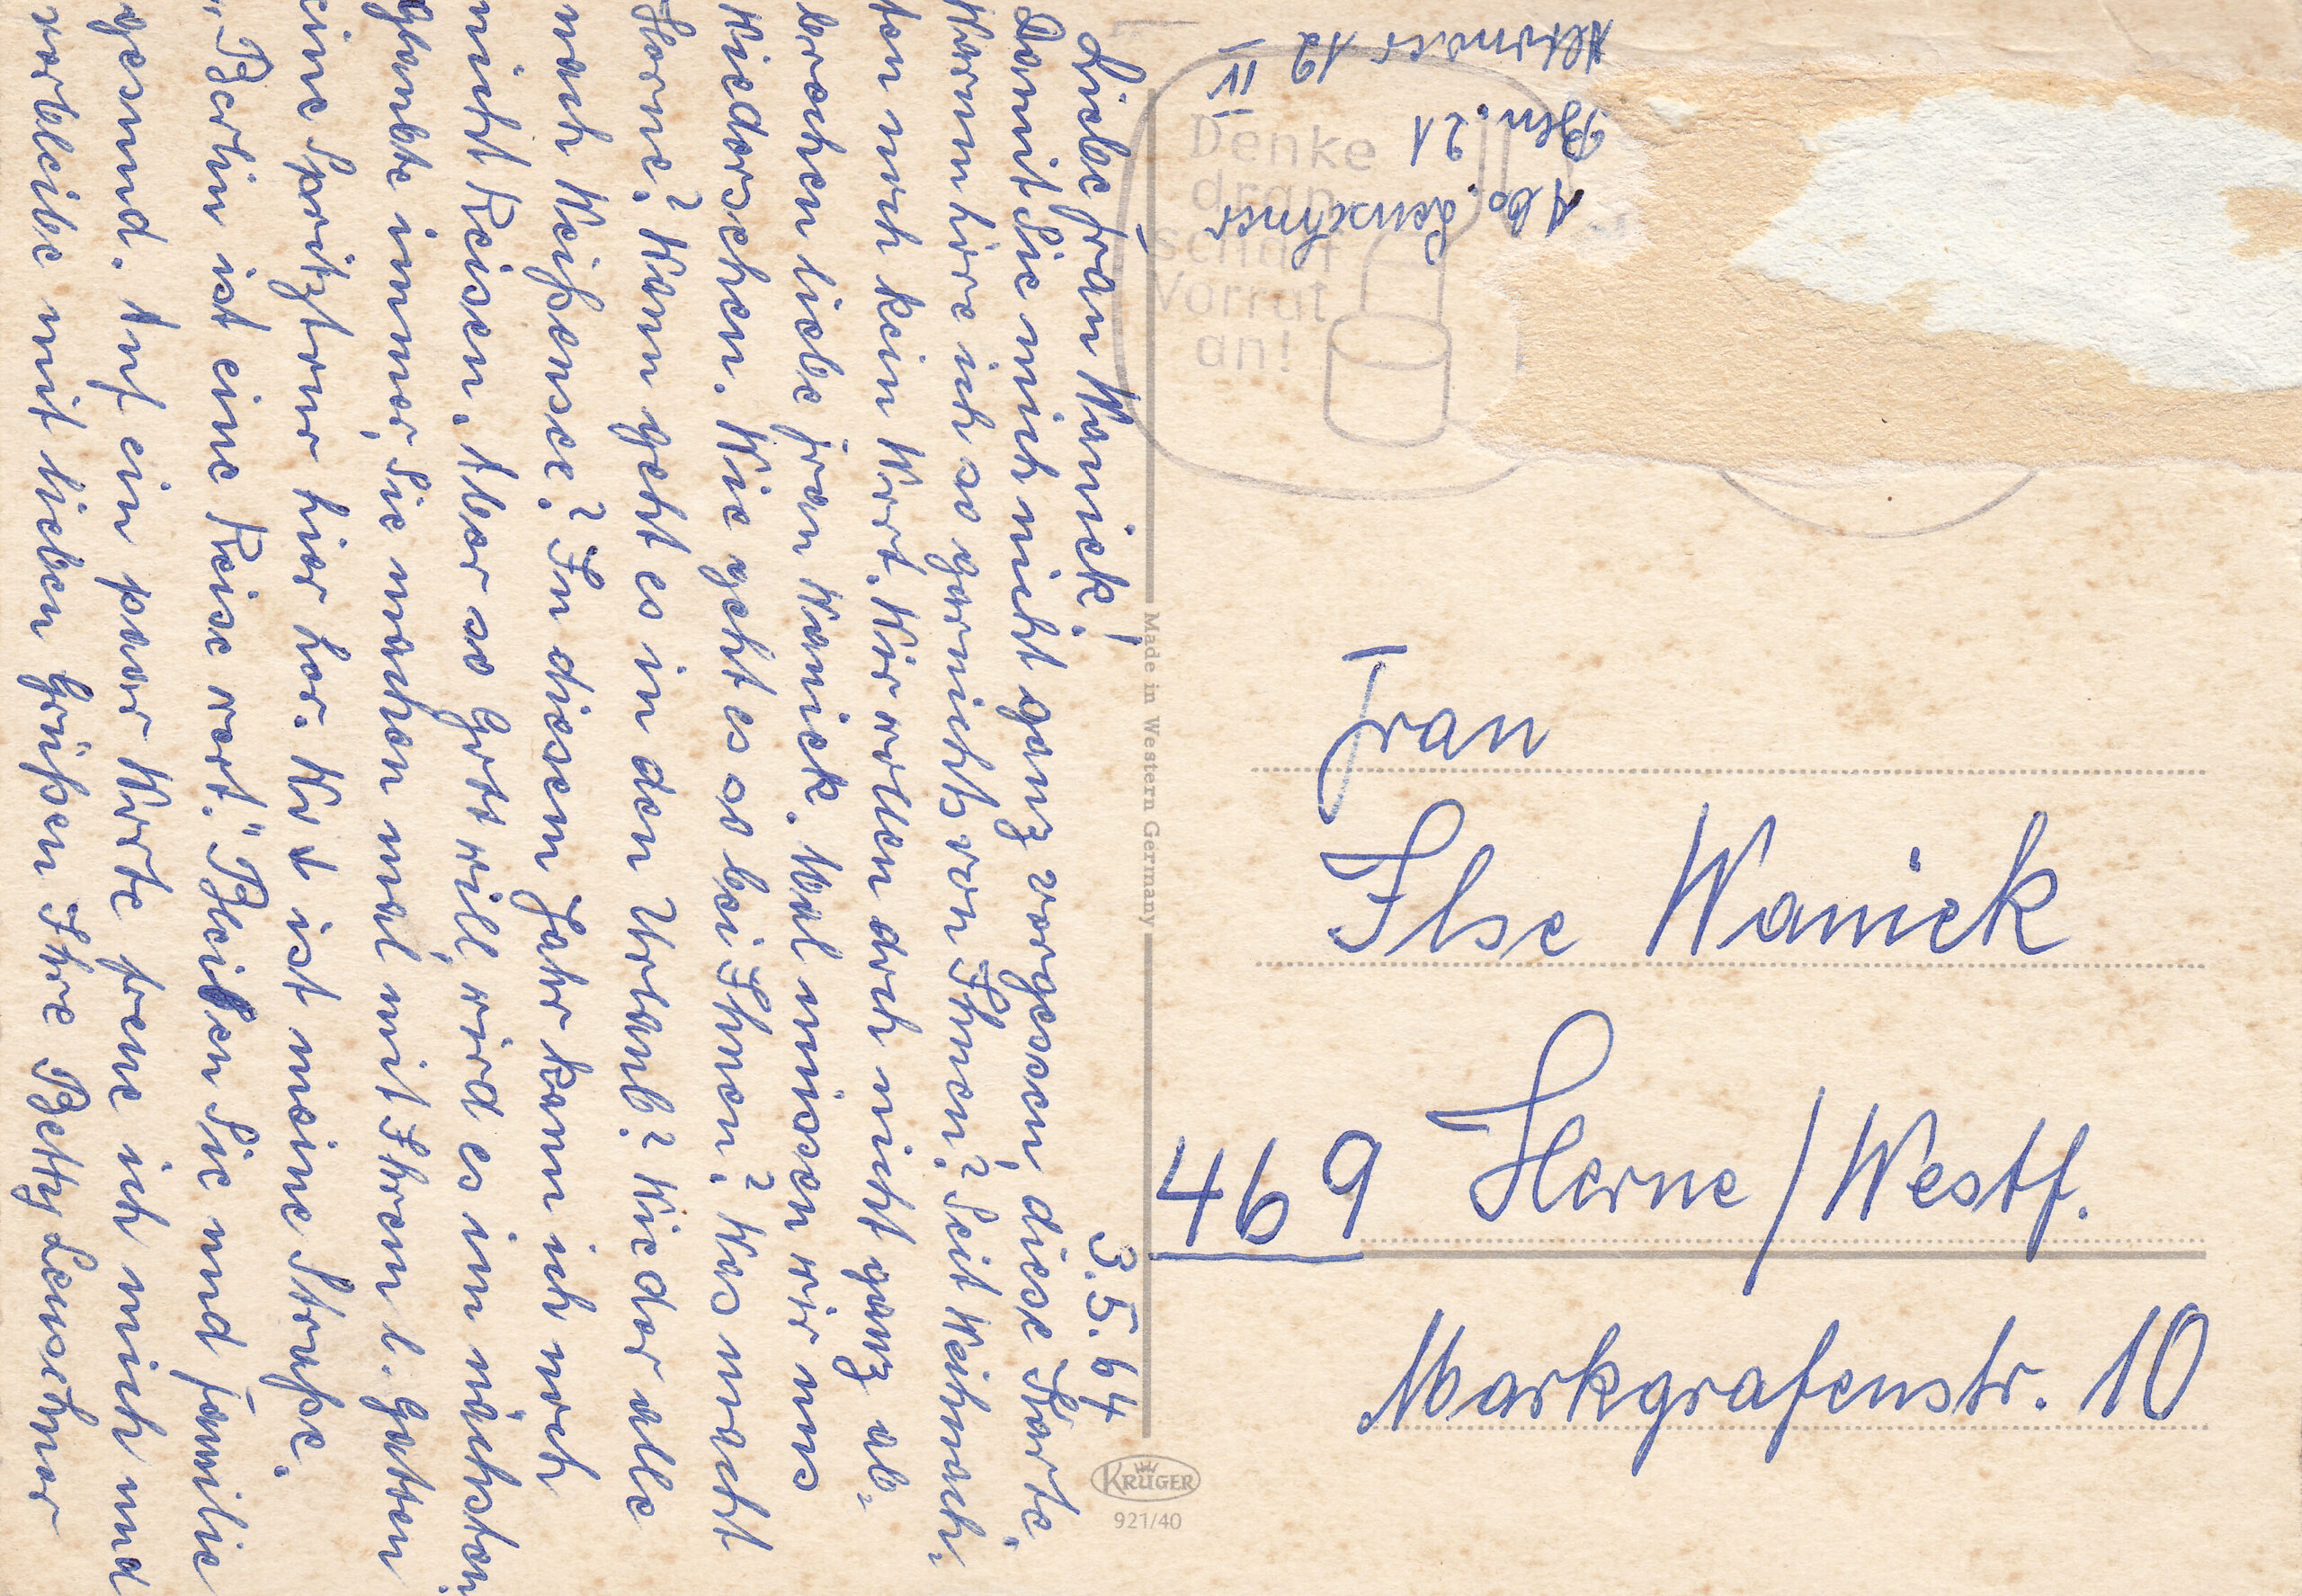 3.5.64
Liebe Frau Wanick!
Damit Sie mich nicht ganz vergessen, diese Karte.
Warum höre ich so garnichts von Ihnen? Seit Weihnach-
ten noch kein Wort. Wir wollen doch nicht ganz ab-
brechen liebe Frau Wanick. Mal müssen wir uns
wiedersehen. Wie geht es so bei Ihnen? Was macht
Herne? Wann geht es in den Urlaub? Wieder alle
nach Weißensee? In diesem Jahr kann ich noch
nicht Reisen. Aber so Gott will, wird es im nächsten.
Glaubte immer, Sie machen mal mit Ihrem l. Gatten
eine Spritztour hier her. Wo ist meine Straße.
"Berlin ist eine Reise wert." Bleiben Sie und Familie
gesund. Auf ein paar Worte freue ich mich und
verbleibe mit lieben Grüßen Ihre Betty Lenschner
Abs. Lenschner
Bln. 21
12 IV
Denke
dran
schaff
Vorrat
an!
Made in Western Germany
Frau
Ilse Wanick
469 Herne/Westf.
Markgrafenstr. 10
KRÜGER
921/40